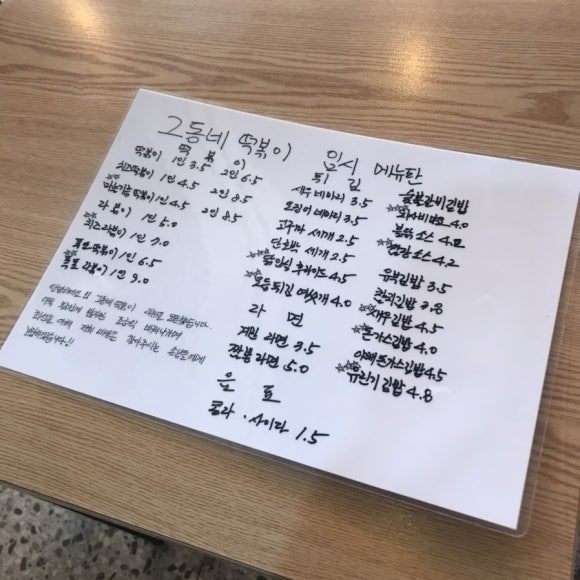 그동네 떡볶이 임시 메뉴판
떡 볶 이
떡볶이 1인 3.5 2인 6.5
치즈떡볶이 1인 4.5 2인 8.5
마늘기름떡볶이 1인 4.5 2인 8.5
라볶이 1인 5.0
치즈라볶이 1인 7.0
폭포떡볶이 1인 6.5
폭포라볶이 1인 9.0
안녕하세요!! 그동네 떡볶이
저희
찾아주시는 손님들에게
튀 김
새우 네마리 3.5
오징어 네마리 3.5
고구마 세개 2.5
단호박 세개 2.5
닭안심 후라이드 4.5
모듬튀김 여섯개 4.0
라 면
계란 라면 3.5
짬뽕라면 5.0
음 료
콜라 · 사이다 1.5
숯불갈비김밥
와사비마요 4.0
불닭소스 4.2
쌈장소스 4.2
유부김밥 3.5
참치김밥 3.8
새우김밥 4.5
돈가스김밥 4.0
야채돈가스김밥 4.5
유린기김밥 4.8